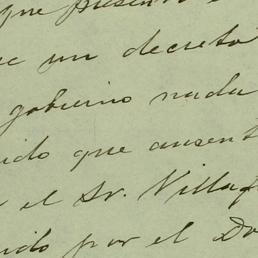 que presento
un decreto
gobierno nada
ido que ausent
el Sr. Villaf
ido por el Do